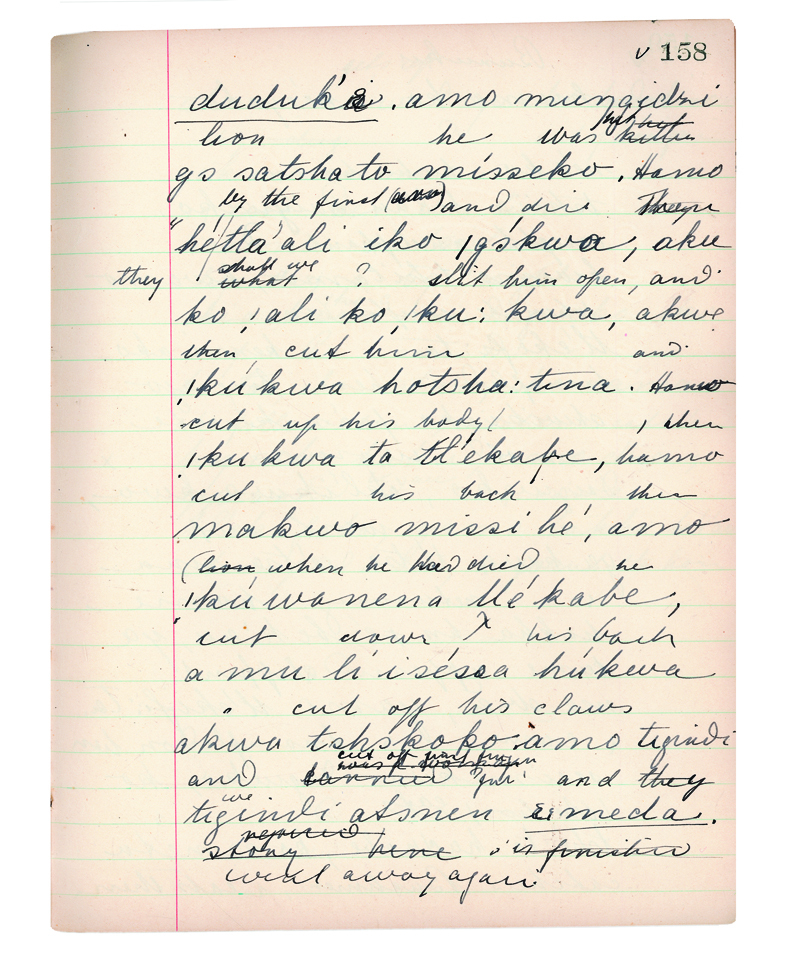 v 158
duduk'a . amo mungidzi
lion he was killed
gs satshato misseko . Hamo
by the first and die
"hétla'ali iko /gs'kwa, aku
they shall we what ? slit him open, and
ko !ali ko !ku: kwa, akwe
then, cut him and
!kúkwa hotsha: tena . Hamo
cut up his body , then
!kukwa ta tl'ekabe, hamo
cut his back then
makwo missí hé, amo
(lion when he had died he
!kúwanena tlékabe,
cut down his back
a mu lí iséssa húkwa
" cut off his claws
akwa tshskoko. amo tigindi
cut off
and carried fur and they
we
tigindi atsnen s:meda.
returned
story here is finished
went away again